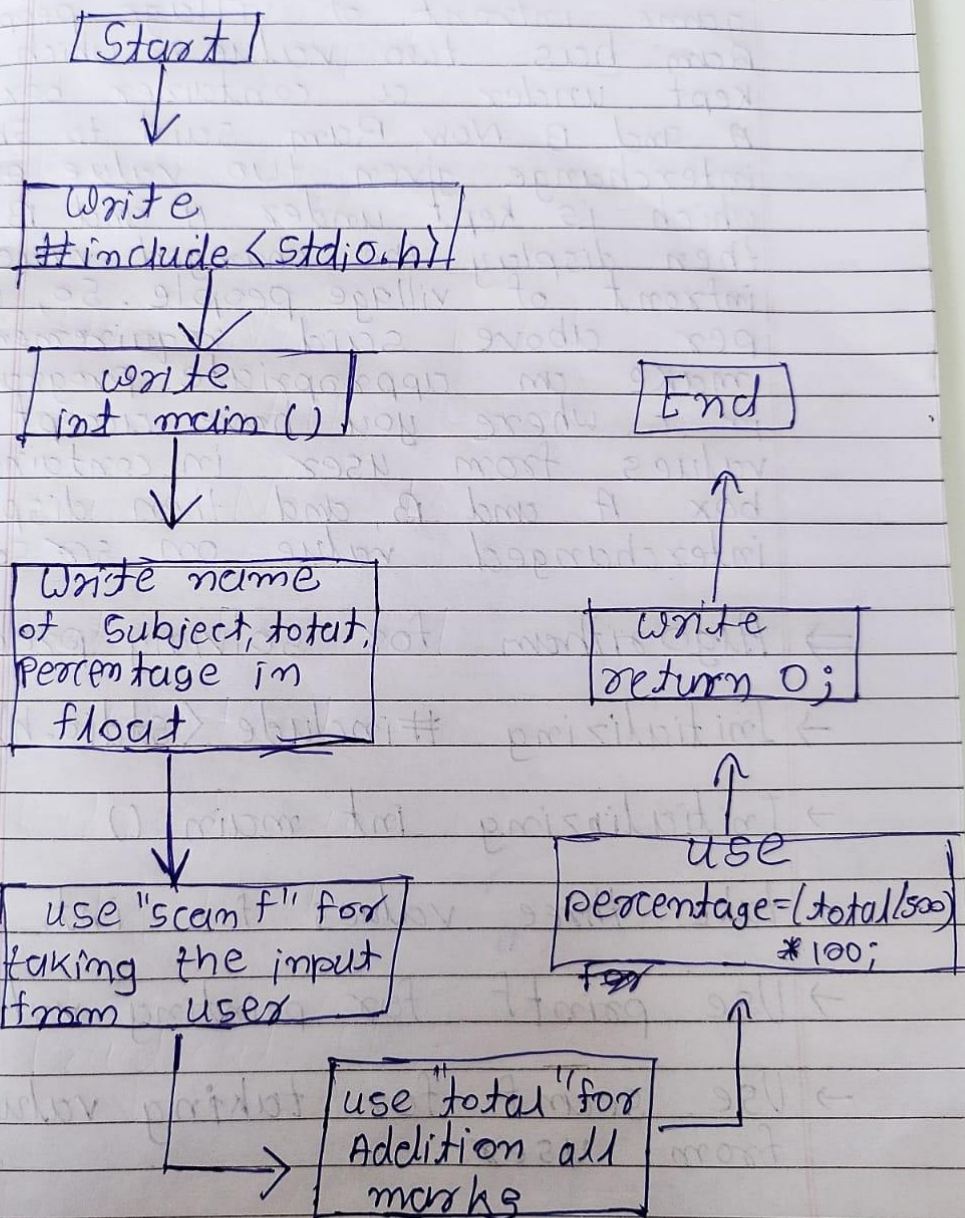 Start
Write
#include <stdio.h>
write
int main ()
Write name
of Subject, total,
Percentage in
float
use "scanf" for
taking the input
from user
use "total" for
Addition all
marks
use
percentage=(total/500)
*100;
write
return 0;
End